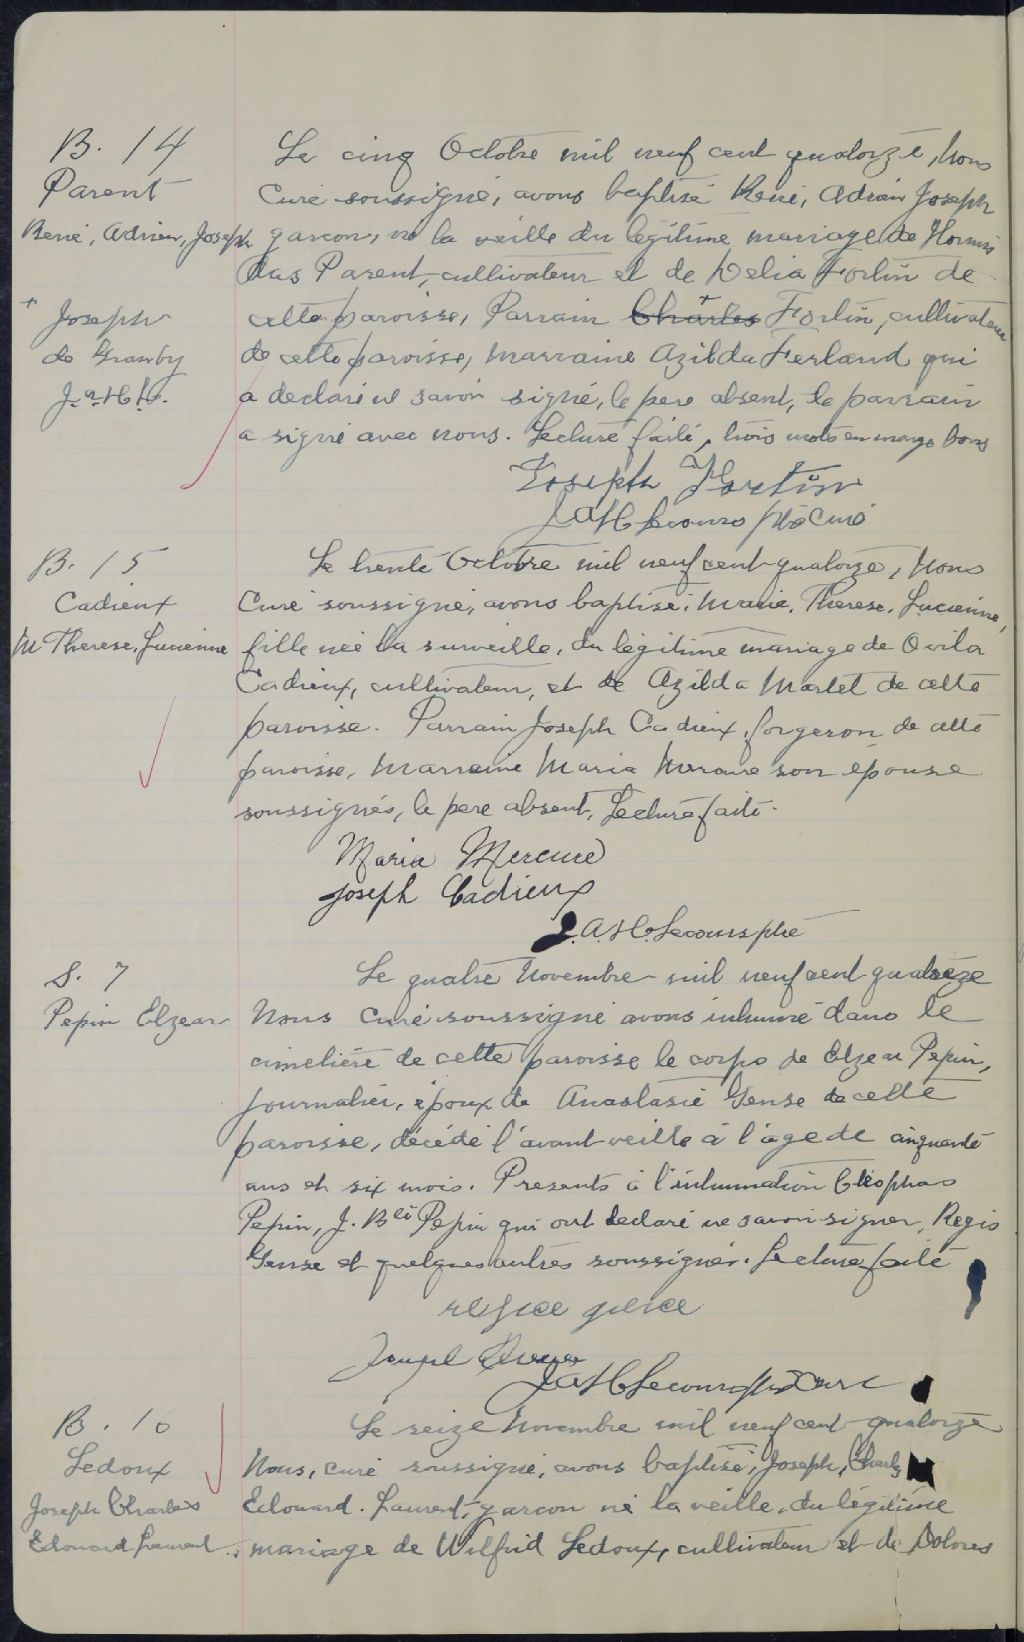 B. 14
Parent
René, Adrien, Joseph
+ Joseph
de Granby
J.A.H.L.
Le cinq Octobre mil neuf cent quatorze, Nous
Curé soussigné, avons baptisé René, Adrien Joseph
garcon, né la veille du légitime mariage de Hormis
das Parent, cultivateur et de Delia Fortin de
cette paroisse, Parrain Charles + Fortin, cultivateur
de cette paroisse, marraine Azilda Ferland qui
a declaré ne savoir signé, le pere absent, le parrain
a signé avec nous. Lecture faite, trois mots en marge bons
Joseph Fortin
J A H Lecours Ptre Curé
B. 15
Cadieux
M Therese, Lucienne
Le trente Octobre mil neuf cent quatorze, Nous
Curé soussigné, avons baptisé, Marie, Therese, Lucienne,
fille née la surveille, du légitime mariage de Ovila
Cadieux, cultivateur, et de Azilda Martet de cette
paroisse. Parrain Joseph Cadieux, forgeron de cette
paroisse, Marraine Maria Mercure son épouse
soussignés, le pere absent, Lecture faite.
Maria Mercure
Joseph Cadieux
J.A.H. Lecours ptre
S. 7
Pepin Elzear
Le quatre Novembre mil neuf cent quatorze
Nous Curé soussigné avons inhumé dans le
cimetière de cette paroisse le corps de Elzear Pepin,
journalier, époux de Anastasie Gense de cette
paroisse, décédé l'avant veille à l'age de cinquante
ans et six mois. Presents à l'inhumation Cléophas
Pepin, J. Bte Pepin qui ont declaré ne savoir signer, Regis
Gense et quelques autres soussignés. Lecture faite
Joseph
J A H Lecours Ptre Curé
B. 16
Ledoux
Joseph Charles
Edouard Laurent
Le seize Novembre mil neuf cent quatorze
Nous, curé soussigné, avons baptisé, Joseph, Charles
Edouard. Laurent, garcon né la veille, du légitime
mariage de Wilfrid Ledoux, cultivateur et de Dolores